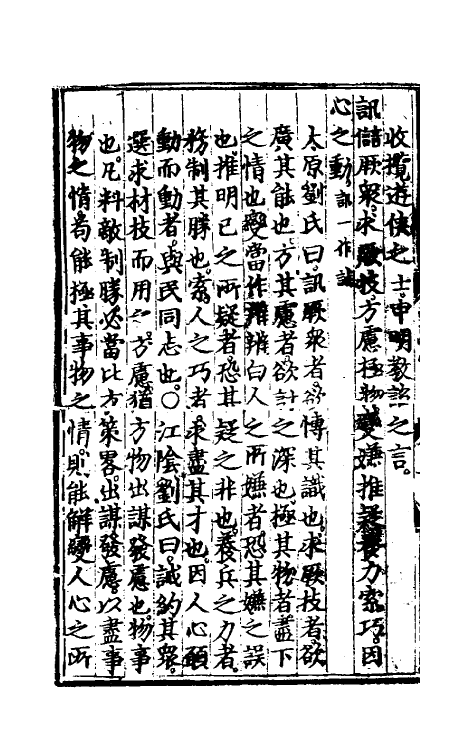 收攬遊俠之士申明教誡之言。
訊信厥衆。求厥技。方慮極物變嫌推疑養力索巧。因
心之動訊一作誠
太原劉氏曰。訊厥衆者。欲博其識也。求厥技者。欲
廣其能也。方其慮者。欲計之深也。極其物者。盡下
之情也。變當作辨。辨白人之所嫌者。恐其嫌之誤
也。推明己之所疑者。恐其疑之非也。養兵之力者。
務制其勝也。索人之巧者。求盡其才也。因人心
動而動者。與民同志也。○江陰劉氏曰。誠約其衆。
選求材技而用之。方慮猶方物出謀發慮也。物事
也。凡料敵制勝必當比方策畧。出謀發慮。以盡事
物之情。能極其事物之情。則能解變人心之所